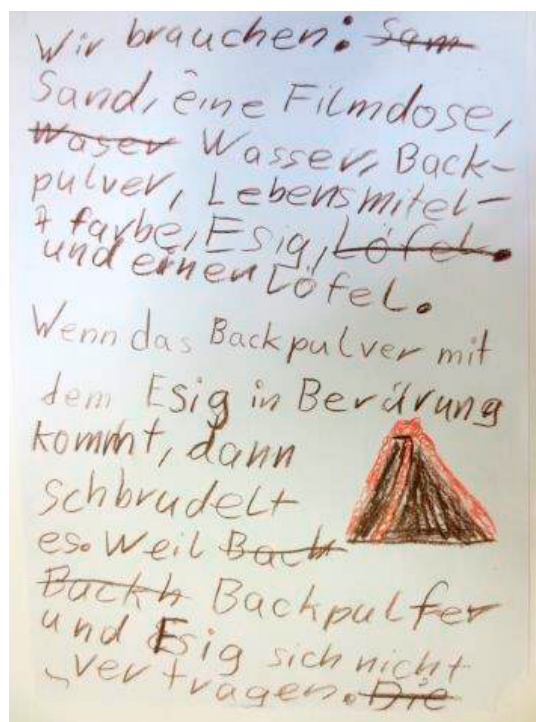 Wir brauchen: Sam
Sand, eine Filmdose,
Waser Wasser, Back-
pulver, Lebensmitel-
farbe, Esig, Löfel.
und einen Löfel.
Wenn das Backpulver mit
dem Esig in Berürung
kommt, dann
schbrudelt
es. Weil Back
Backh Backpulfer
und Esig sich nicht
vertragen. Die